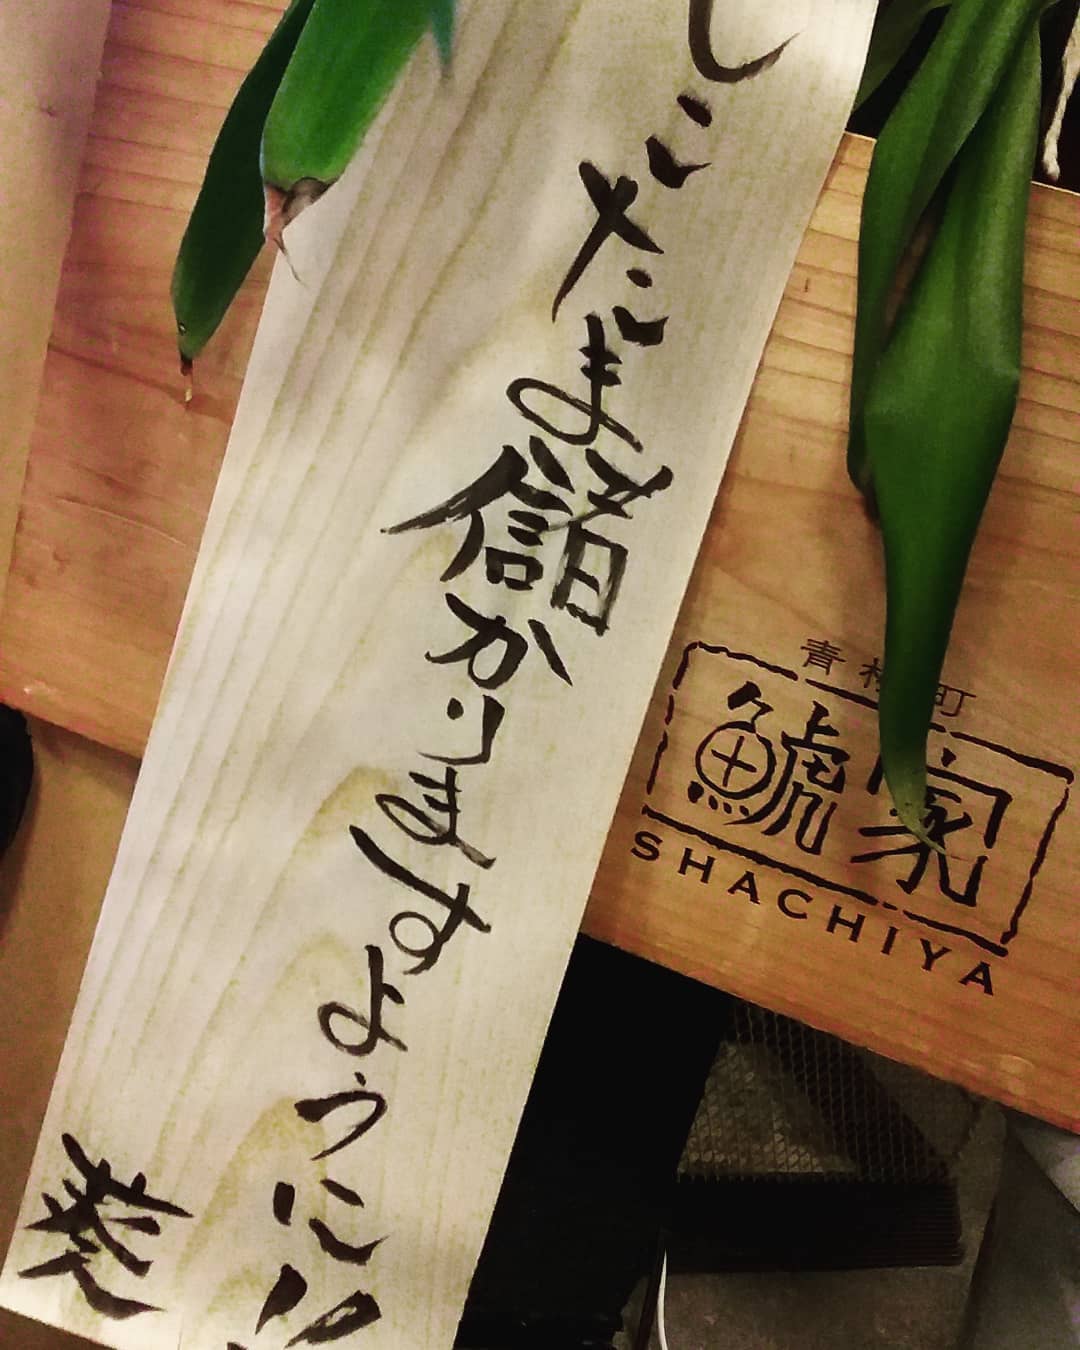 しこたま儲かりますように!!
葵
青 町
鯱家
SHACHIYA